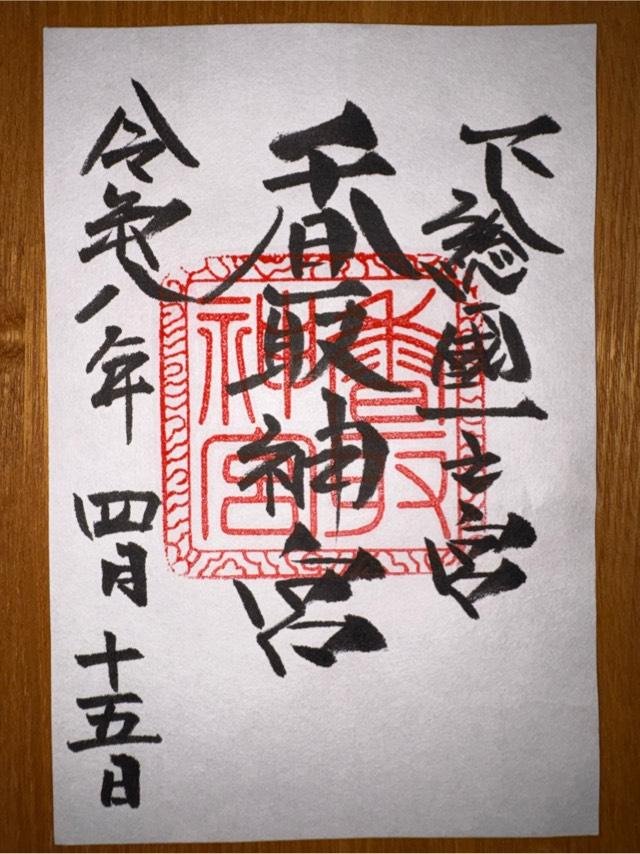 下総國一之宮
香取神宮
令和八年四月十五日
香取神宮